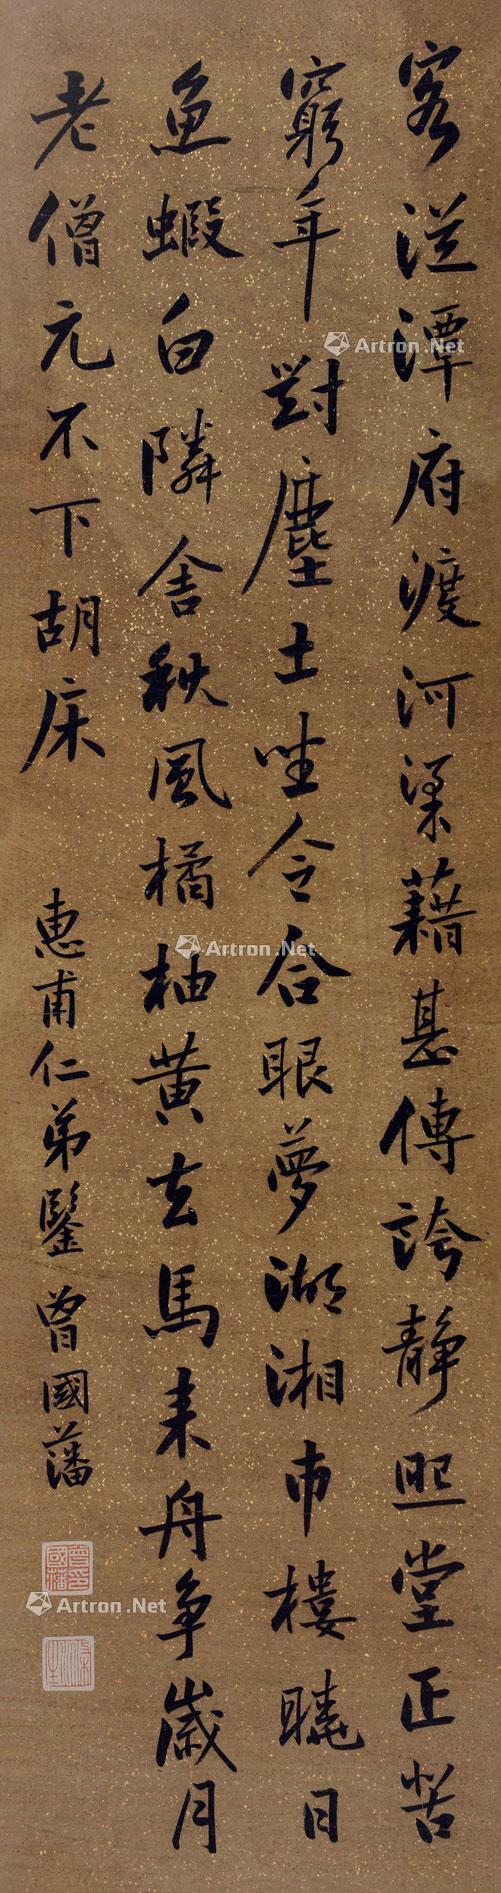 客從潭府渡河梁藉甚傳誇靜照堂正苦
窮年對塵土坐令合眼夢湖湘市樓曉日
魚蝦白隣舍秋風橘柚黃去馬来舟争歲月
老僧元不下胡床
惠甫仁弟鑒曾國藩
Artron.Net
Artron.Net
Artron.Net